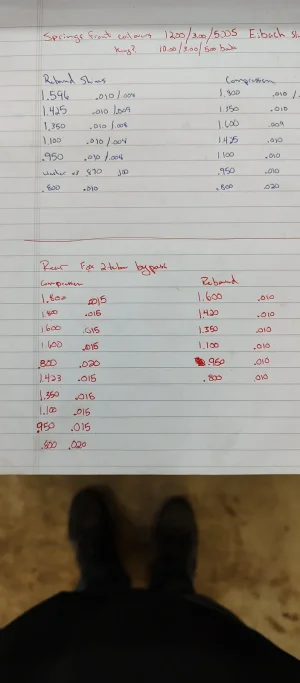 Springs front colours 1200/300/500S Eibach
1000/300/500
Rebound Shims Compression
1.596 .010/.008 1.800 .010/
1.425 .010/.009 1.350 .010
1.350 .010/.008 1.600 .009
1.100 .010/.008 1.425 .010
.950 .010/.008 1.100 .010
.950 .010
.800 .010 .800 .020
Rear For 2 tube bypass
Compression Rebound
1.800 .015 1.600 .010
1.800 .015 1.420 .010
1.600 .015 1.350 .010
1.600 .015 1.100 .010
.800 .020 .950 .010
1.423 .015 .800 .010
1.350 .015
1.100 .015
.950 .015
.800 .020